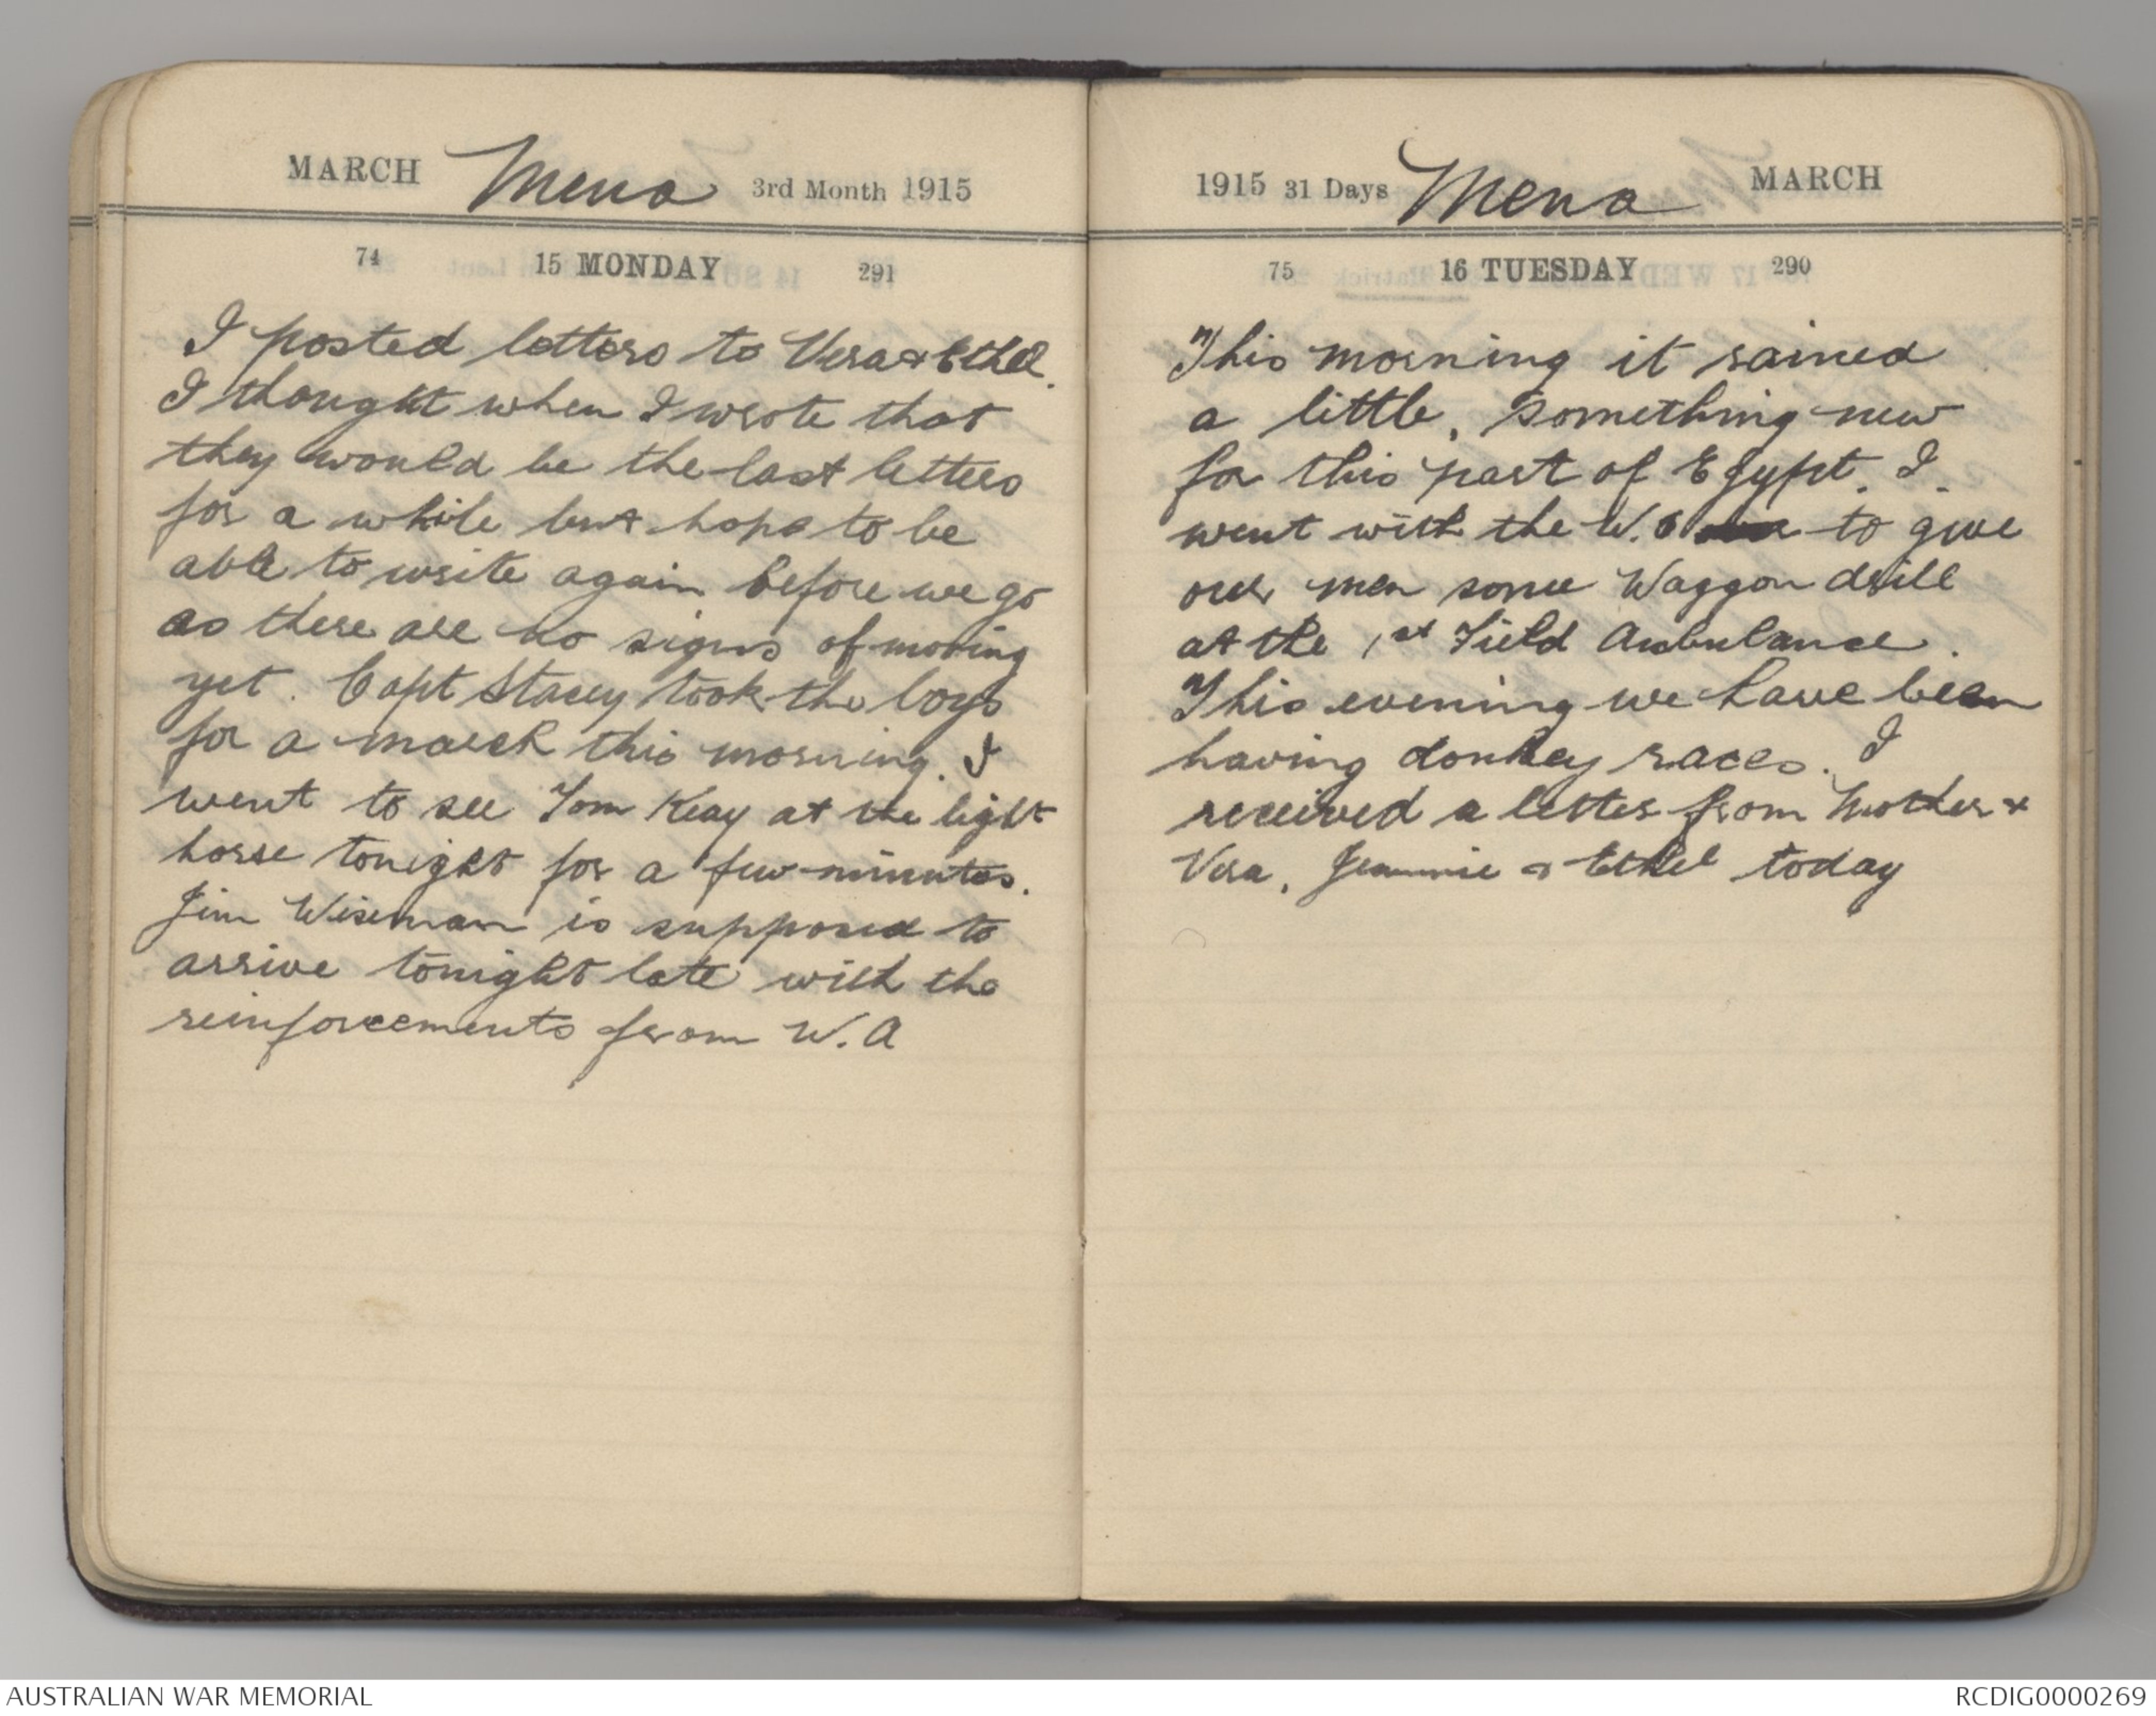 MARCH Mena 3rd Month 1915
74 15 MONDAY 291
I posted letters to Vera & Ethel.
I thought when I wrote that
they would be the last letters
for a while but hope to be
able to write again before we go
as there are no signs of moving
yet. Capt Stacey took the boys
for a march this morning. I
went to see Tom Keay at the light
horse tonight for a few minutes.
Jim Wiseman is supposed to
arrive tonight late with the
reinforcements from W.A
1915 31 Days Mena MARCH
75 16 TUESDAY 290
This morning it rained
a little, something new
for this part of Egypt. I
went with the W.O to give
our men some Waggon drill
at the 1st Field Ambulance.
This evening we have been
having donkey races. I
received a letter from Mother &
Vera, Jeannie & Ethel today
AUSTRALIAN WAR MEMORIAL
RCDIG0000269